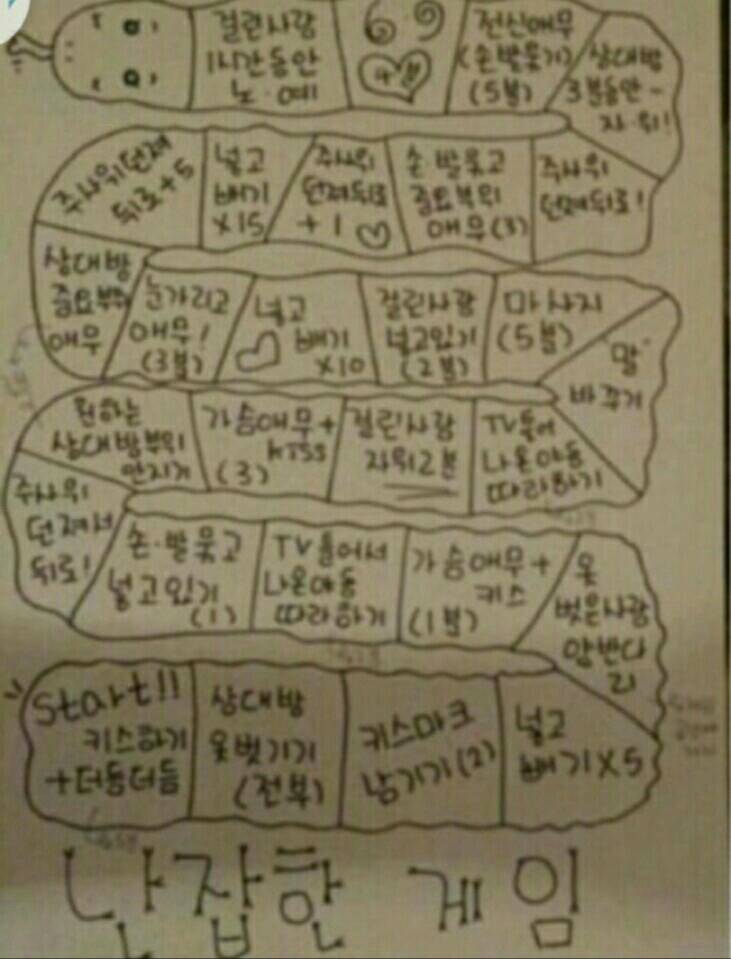 걸린사람
1시간동안
노·예
69
전신애무
(손발묶기)
(5분)
상대방
3분동안
자·위!
주사위던져
뒤로+5
넣고
빼기
X15
주사위
던져뒤로
+1
손·발묶고
중요부위
애무(3)
주사위
던져뒤로!
상대방
중요부위
애무
눈가리고
애무!
(3분)
넣고
빼기
X10
걸린사람
넣고있기
(2분)
마사지
(5분)
"말"
바꾸기
원하는
상대방부위
만지기
가슴애무+
KISS
(3)
걸린사람
자위2분
TV틀어
나온야동
따라하기
주사위
던져서
뒤로!
손·발묶고
넣고있기
(1)
TV틀어서
나온야동
따라하기
가슴애무+
키스
(1분)
옷
벗은사람
Start!!
키스하기
+더듬더듬
상대방
옷벗기기
(전부)
키스마크
남기기(2)
넣고
빼기X5
난잡한 게임